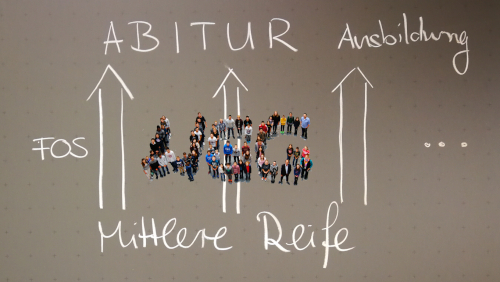 ABITUR Ausbildung
FOS ...
Mittlere Reife